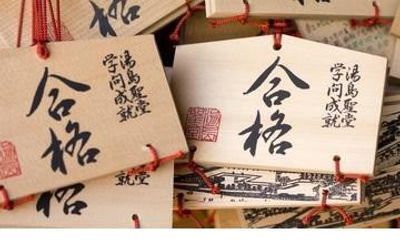 湯島聖堂
学問成就
合格
湯島聖堂
学問成就
合格
堂
就
格